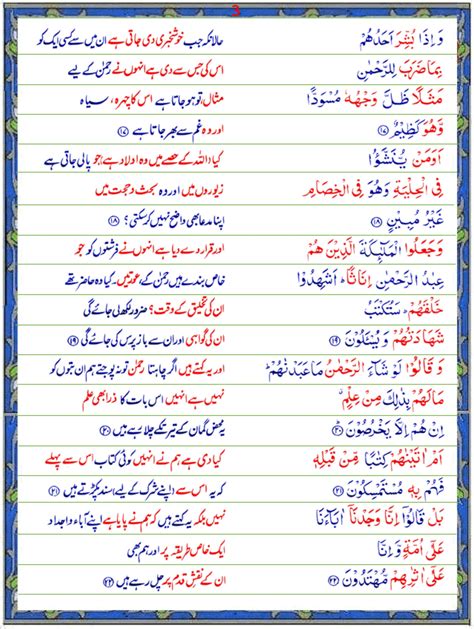 3
وَ اِذَا بُشِّرَ اَحَدُهُمْ حالانکہ جب خوشخبری دی جاتی ہے ان میں سے کسی ایک کو
بِمَا ضَرَبَ لِلرَّحْمٰنِ اس کی جس سے دی ہے انہوں نے رحمٰن کے لیے
مَثَلًا ظَلَّ وَجْهُهٗ مُسْوَدًّا مثال، تو ہو جاتا ہے اس کا چہرہ، سیاہ
وَّهُوَ كَظِيْمٌ ۝۱۷ اور وہ غم سے بھر جاتا ہے ۝۱۷
اَوَمَنْ يُّنَشَّؤُا کیا اللہ کے حصے میں وہ اولاد ہے جو پالی جاتی ہے
فِى الْحِلْيَةِ وَهُوَ فِى الْخِصَامِ زیوروں میں اور وہ بحث و حجت میں
غَيْرُ مُبِيْنٍ ۝۱۸ اپنا مدعا بھی واضح نہیں کر سکتی؟ ۝۱۸
وَجَعَلُوا الْمَلٰٓئِكَةَ الَّذِيْنَ هُمْ اور قرار دے دیا ہے انہوں نے فرشتوں کو جو
عِبٰدُ الرَّحْمٰنِ اِنَاثًا ؕ اَشَهِدُوْا خاص بندے ہیں رحمٰن کے، عورتیں۔ کیا وہ حاضر تھے
خَلْقَهُمْ ؕ سَتُكْتَبُ ان کی تخلیق کے وقت؟ ضرور لکھ لی جائے گی
شَهَادَتُهُمْ وَ يُسْئَلُوْنَ ۝۱۹ ان کی گواہی اور ان سے باز پرس کی جائے گی ۝۱۹
وَ قَالُوْا لَوْ شَآءَ الرَّحْمٰنُ مَا عَبَدْنٰهُمْ ؕ اور یہ کہتے ہیں اگر چاہتا رحمٰن تو نہ پوجتے ہم ان بتوں کو
مَا لَهُمْ بِذٰلِكَ مِنْ عِلْمٍ ۗ نہیں ہے انہیں اس بات کا ذرا بھی علم
اِنْ هُمْ اِلَّا يَخْرُصُوْنَ ۝۲۰ یہ محض گمان کے تیر تکے چلا رہے ہیں ۝۲۰
اَمْ اٰتَيْنٰهُمْ كِتٰبًا مِّنْ قَبْلِهٖ کیا دی ہے ہم نے انہیں کوئی کتاب اس سے پہلے
فَهُمْ بِهٖ مُسْتَمْسِكُوْنَ ۝۲۱ کہ یہ اس سے (اپنے شرک کے لیے) سند پکڑتے ہیں ۝۲۱
بَلْ قَالُوْۤا اِنَّا وَجَدْنَاۤ اٰبَآءَنَا نہیں بلکہ یہ کہتے ہیں کہ ہم نے پایا ہے اپنے آباء و اجداد
عَلٰٓى اُمَّةٍ وَّ اِنَّا ایک خاص طریقہ پر اور ہم بھی
عَلٰٓى اٰثٰرِهِمْ مُّهْتَدُوْنَ ۝۲۲ ان کے نقش قدم پر چل رہے ہیں ۝۲۲